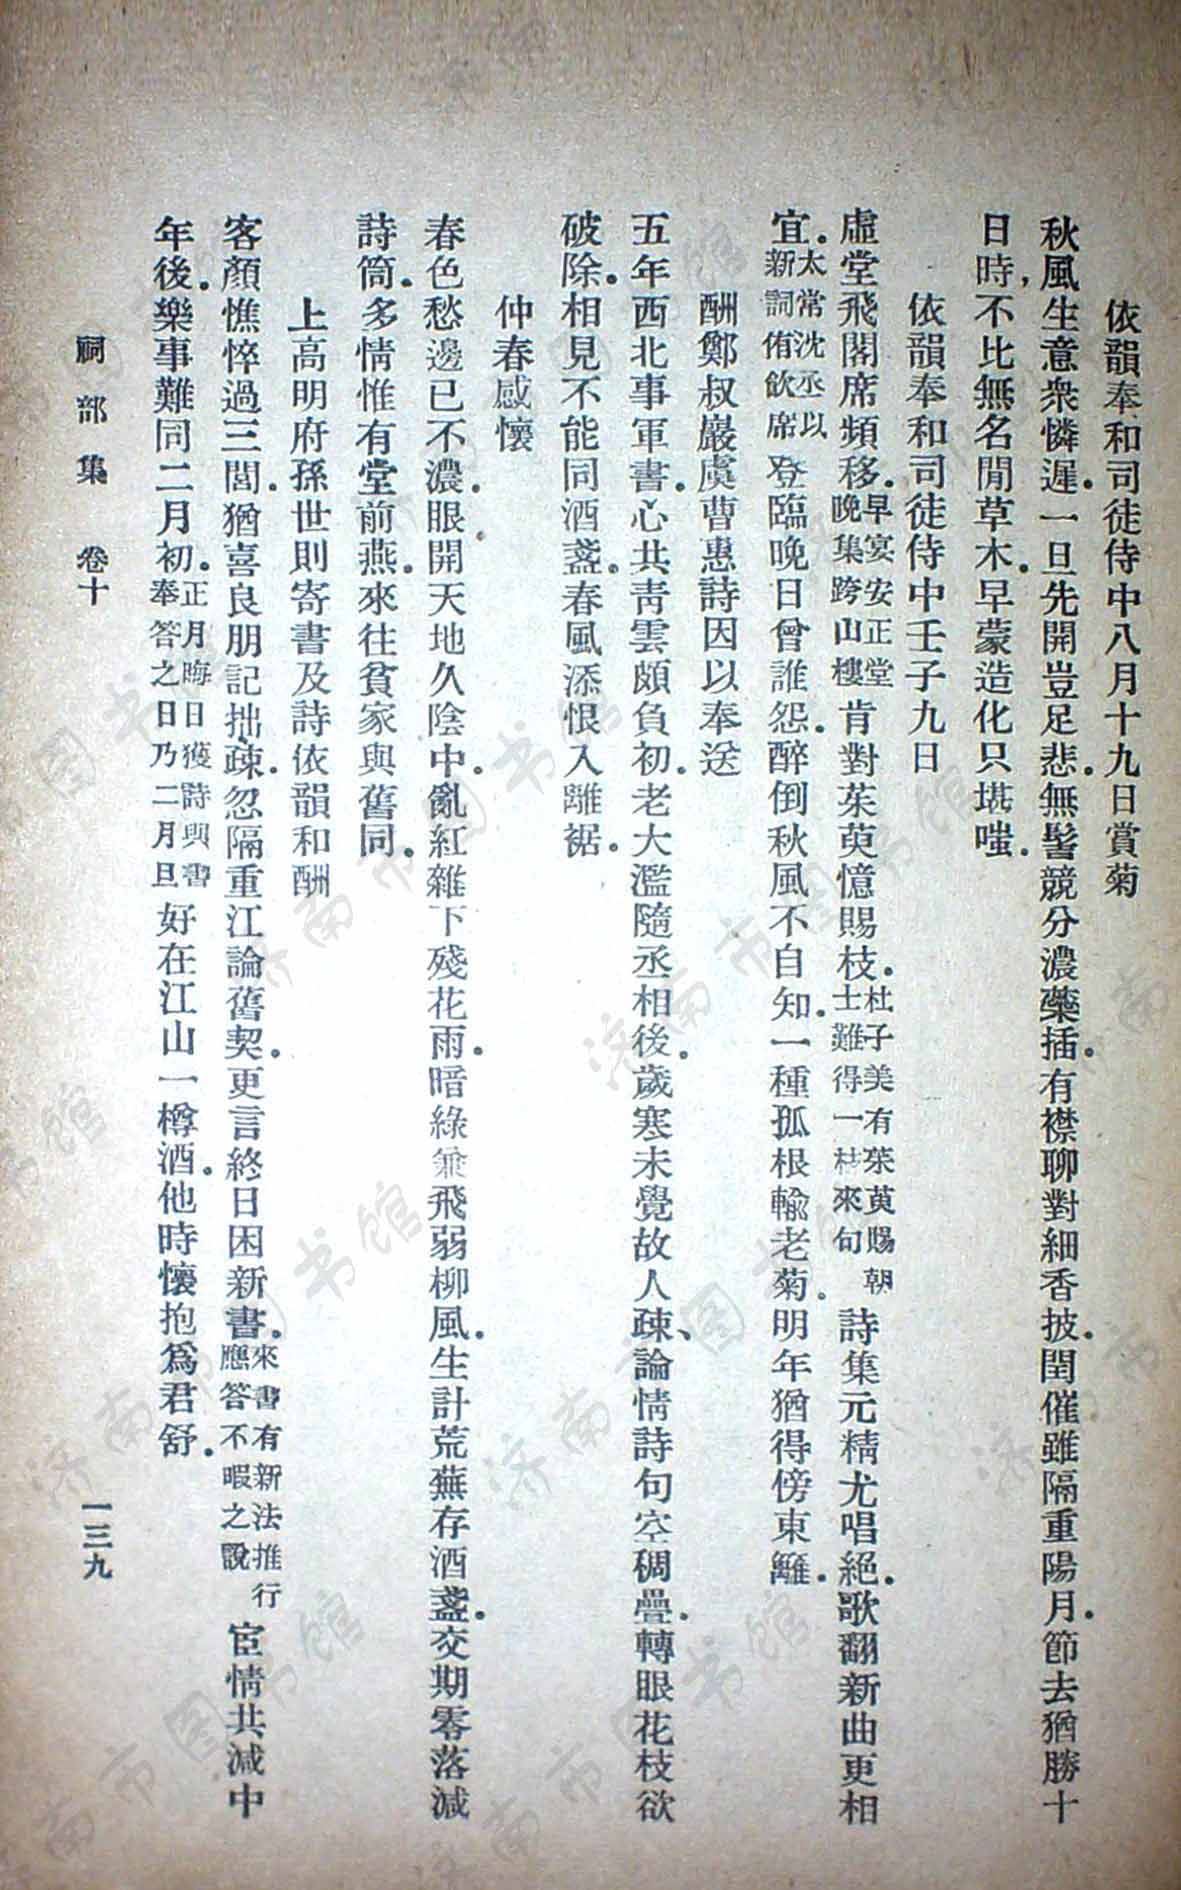 依韻奉和司徒侍中八月十九日賞菊
秋風生意衆憐遲．一旦先開豈足悲．無髻競分濃藥插．有襟聊對細香披．閏催雖隔重陽月．節去猶勝十
日時，不比無名閒草木．早蒙造化只堪嗤．
依韻奉和司徒侍中壬子九日
虛堂飛閣席頻移．早宴安正堂晚集跨山樓肯對茱萸憶賜枝．杜子美有茱萸賜朝士難得一枝來句詩集元精尤唱絕．歌翻新曲更相
宜．太常沈丞以新詞侑飲席登臨晚日曾誰怨．醉倒秋風不自知．一種孤根輸老菊．明年猶得傍東籬．
酬鄭叔巖虞曹惠詩因以奉送
五年西北事軍書．心共靑雲頗負初．老大濫隨丞相後．歲寒未覺故人疎、論情詩句空稠疊．轉眼花枝欲
破除．相見不能同酒盞．春風添恨入離裾．
仲春感懷
春色愁邊已不濃．眼開天地久陰中．亂紅雜下殘花雨．暗綠兼飛弱柳風．生計荒蕪存酒盞．交期零落減
詩筒．多情惟有堂前燕．來往貧家與舊同．
上高明府孫世則寄書及詩依韻和酬
客顏憔悴過三閭．猶喜良朋記拙疎．忽隔重江論舊契．更言終日困新書．來書有新法推行應答不暇之說宦情共減中
年後．樂事難同二月初．正月晦日獲詩與書奉答之日乃二月旦好在江山一樽酒．他時懷抱爲君舒．
祠部集　卷十
一三九
济南市图书馆